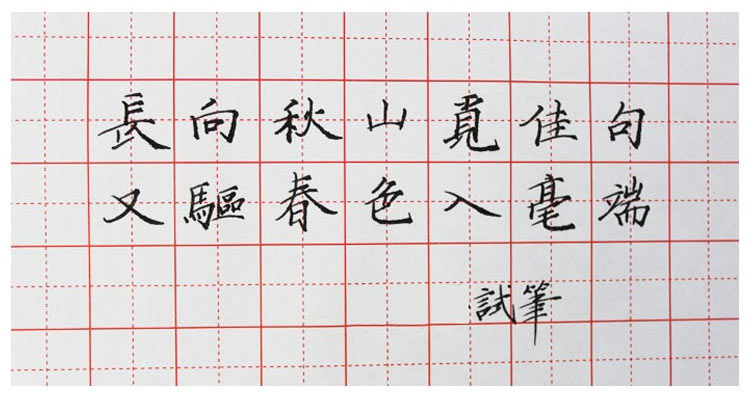 長向秋山覓佳句
又驅春色入毫端
試筆